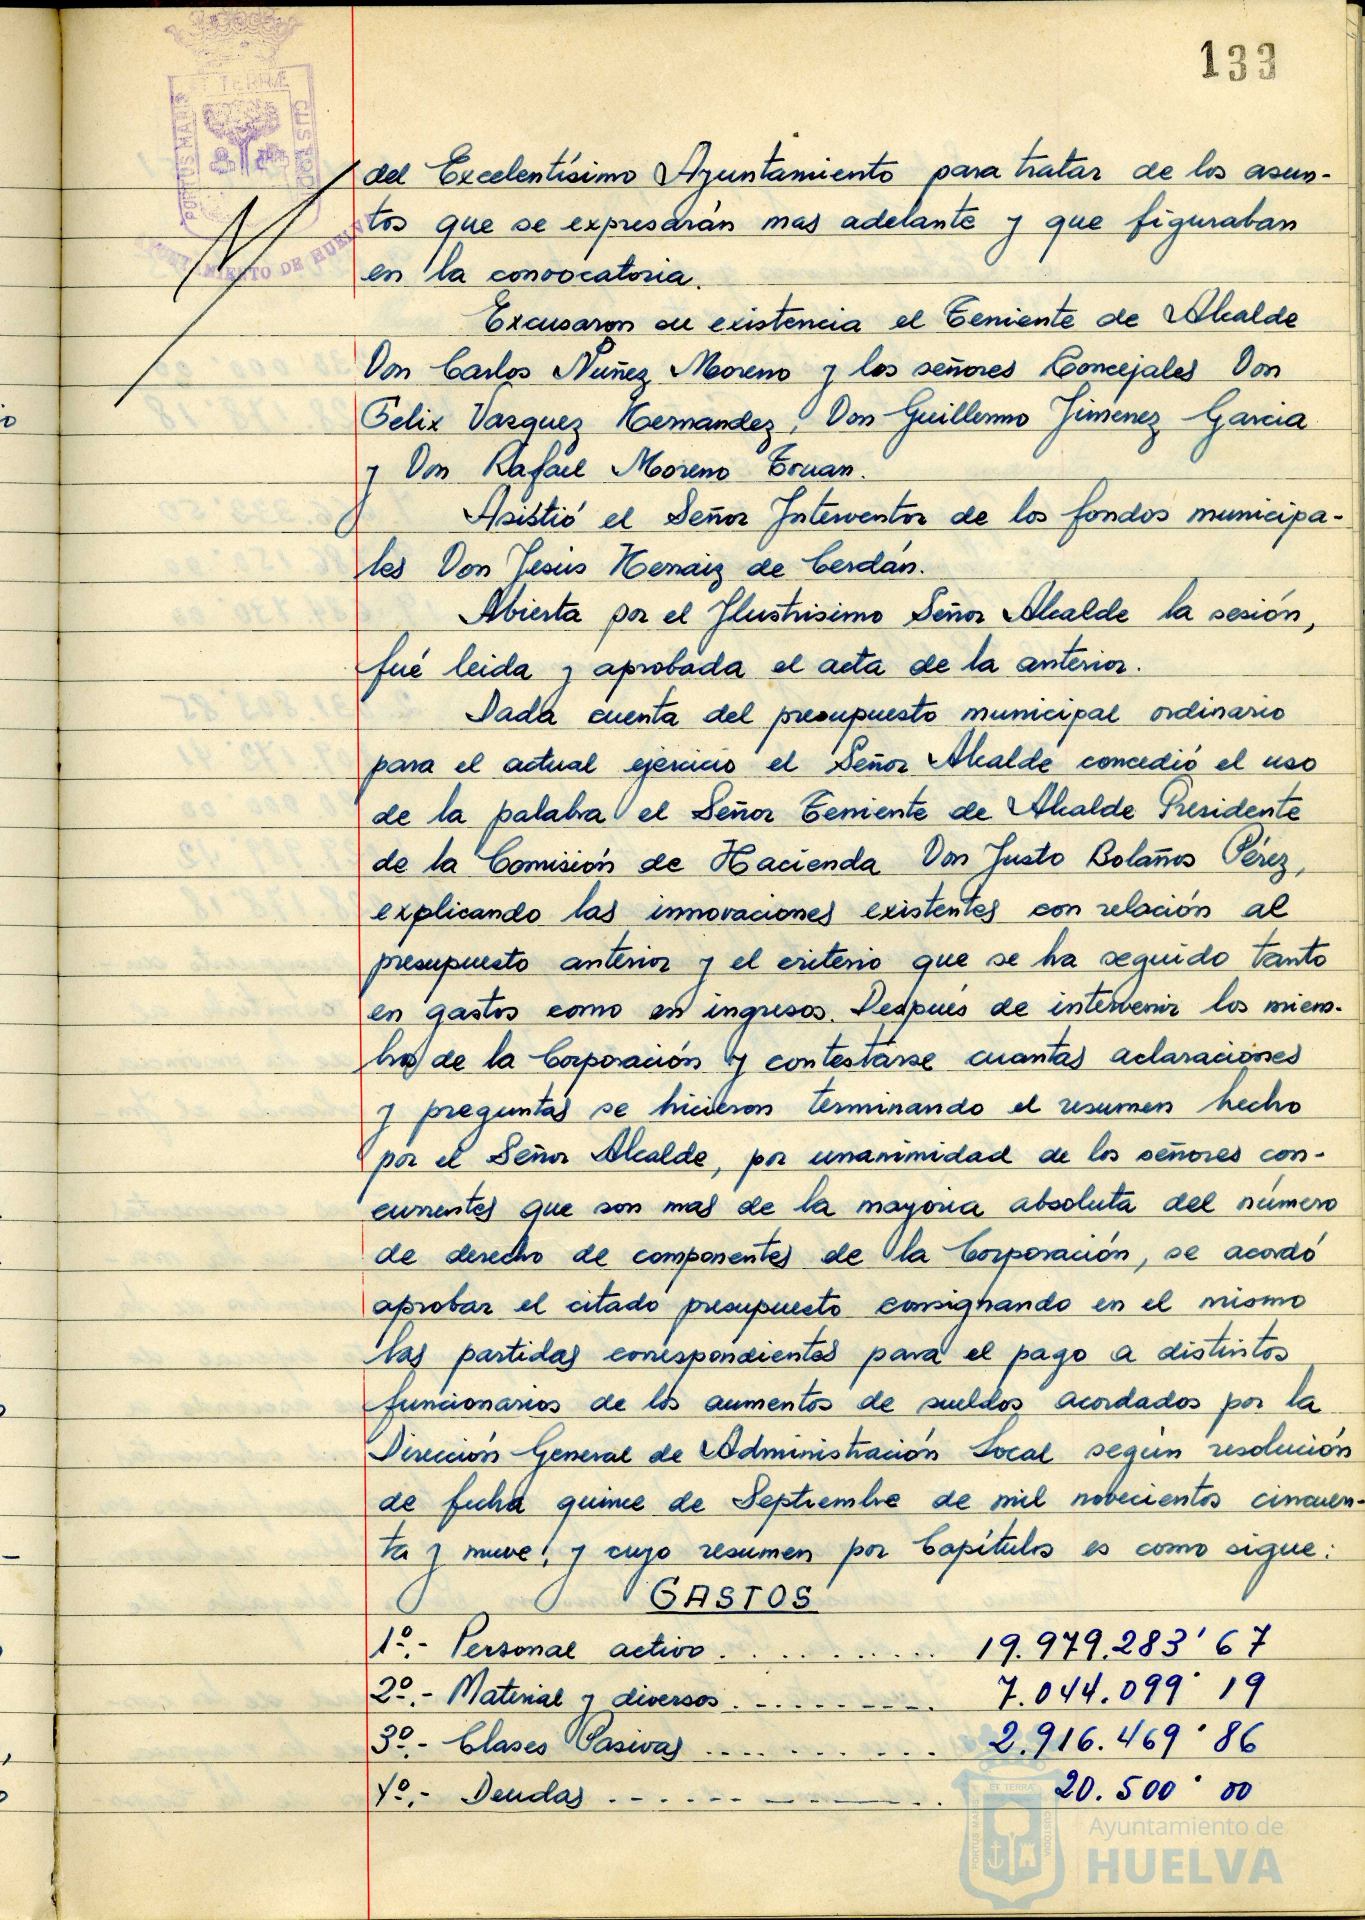 133
PORTUS MARIS ET TERRÆ CUSTODIA
AYUNTAMIENTO DE HUELVA
del Excelentísimo Ayuntamiento para tratar de los asun-
tos que se expresarán mas adelante y que figuraban
en la convocatoria.
Excusaron su existencia el Teniente de Alcalde
Don Carlos Nuñez Moreno y los señores Concejales Don
Felix Vazquez Hernandez, Don Guillermo Jimenez Garcia
y Don Rafael Moreno
Asistió el Señor Interventor de los fondos municipa-
les Don Jesús Hernaiz de Cerdán.
Abierta por el Ilustrisimo Señor Alcalde la sesión,
fué leida y aprobada el acta de la anterior.
Dada cuenta del presupuesto municipal ordinario
para el actual ejercicio el Señor Alcalde concedió el uso
de la palabra el Señor Teniente de Alcalde Presidente
de la Comisión de Hacienda Don Justo Bolaños Pérez,
explicando las innovaciones existentes con relación al
presupuesto anterior y el criterio que se ha seguido tanto
en gastos como en ingresos. Después de intervenir los miem-
bros de la Corporación y contestarse cuantas aclaraciones
y preguntas se hicieron terminando el resumen hecho
por el Señor Alcalde, por unanimidad de los señores con-
currentes que son mas de la mayoria absoluta del número
de derecho de componentes de la Corporación, se acordó
aprobar el citado presupuesto consignando en el mismo
las partidas correspondientes para el pago a distintos
funcionarios de los aumentos de sueldos acordados por la
Dirección General de Administración Local según resolución
de fecha quince de Septiembre de mil novecientos cincuen-
ta y nueve, y cuyo resumen por Capítulos es como sigue:
GASTOS
1º.- Personal activo. . . . . . . . . . 19.979.283'67
2º.- Material y diversos. . . . . . . . . 7.044.099'19
3º.- Clases Pasivas . . . . . . . . . . 2.916.469'86
4º.- Deudas . . . . . . . . . . . . 20.500'00
PORTUS MARIS ET TERRA CUSTODIA
Ayuntamiento de
HUELVA